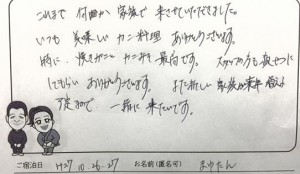 これまで 何回か 家族で 来させていただきました。
いつも 美味しい カニ料理 ありがとうございます。
特に 焼きガニ カニすき 最高です。 スタッフの方も 親切に
してもらい ありがとうございます。 また新しい 家族が来年
一緒に 来たいです。
ご宿泊日 H27 10.26-27 お名前(匿名可) まゆたん